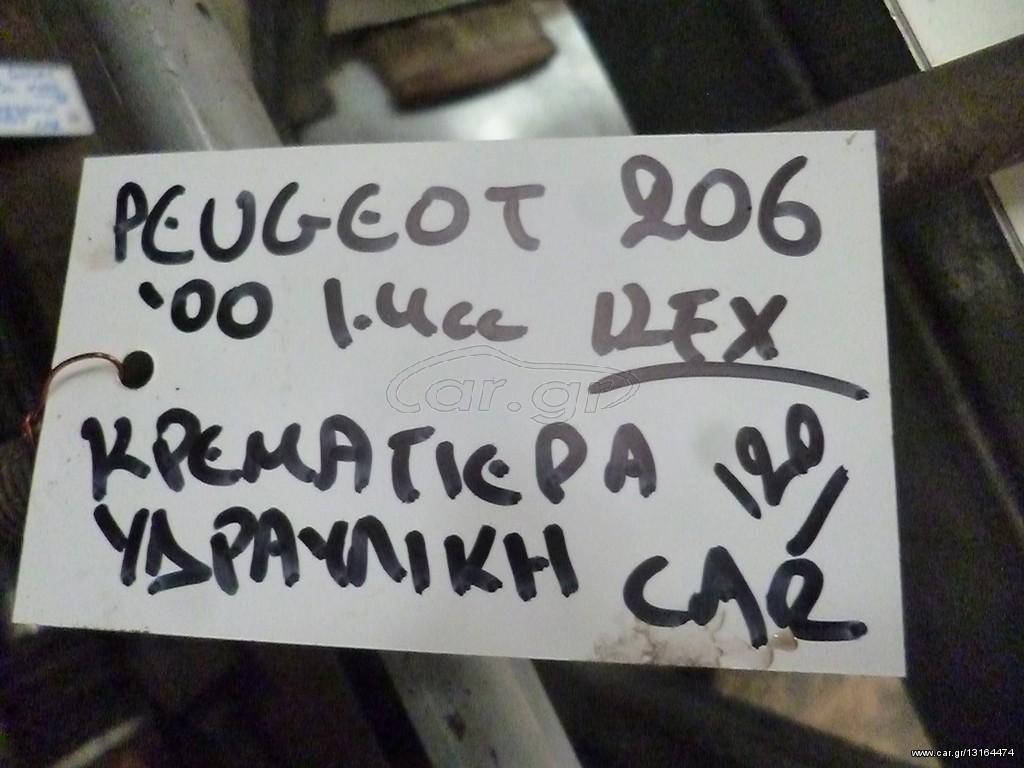 PEUGEOT 206
'00 1.4cc KFX
ΚΡΕΜΑΤΙΕΡΑ
ΥΔΡΑΥΛΙΚΗ
CAR
car.gr
www.car.gr/13164474